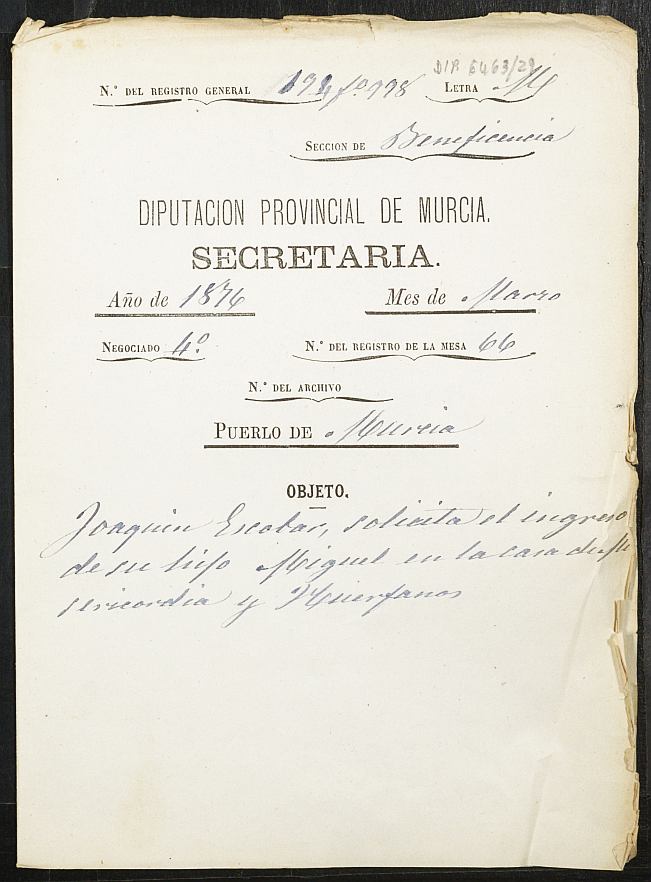 DIP 6463/29
N.° DEL REGISTRO GENERAL 194 fo 998 LETRA M
SECCION DE Beneficencia
DIPUTACION PROVINCIAL DE MURCIA.
SECRETARIA.
Año de 1876 Mes de Marzo
NEGOCIADO 4.° N.° DEL REGISTRO DE LA MESA 66
N.° DEL ARCHIVO
PUERLO DE Murcia
OBJETO.
Joaquin Escobar, solicita el ingreso
de su hijo Miguel en la casa de Mi
sericordia y Huerfanos